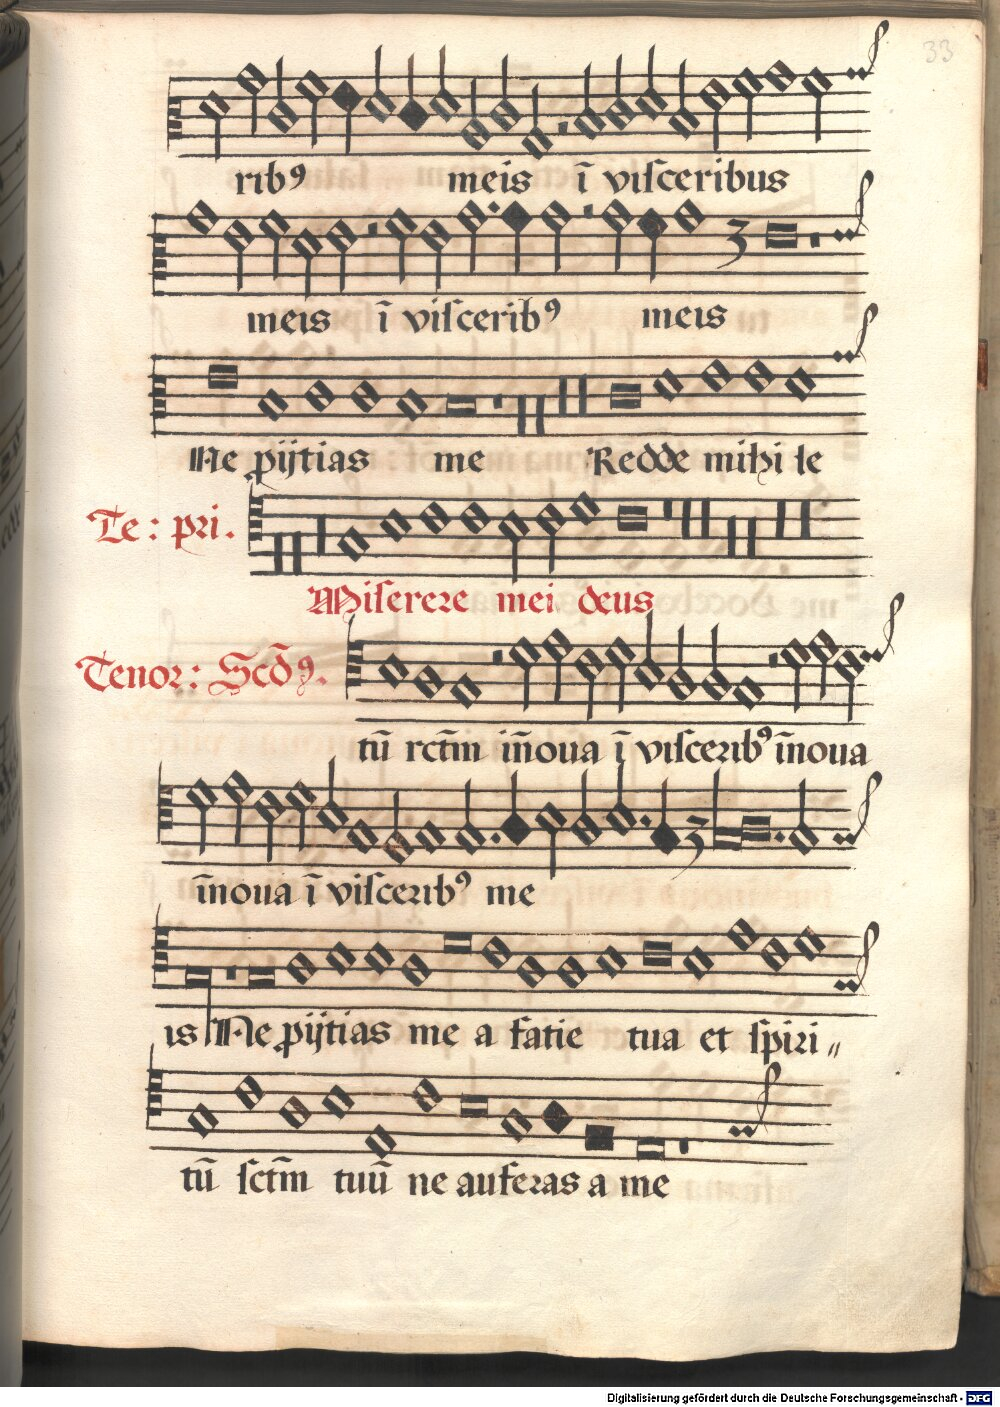 33
ribꝰ meis ī viſceribus
meis ī viſceribꝰ meis
Ne ꝓijtias me Redde mihi le
Te: pri.
Miſerere mei deus
Tenor: Scd̄ꝰ.
tū rctm̄ iñoua ī viſceribꝰ īnoua
īnoua ī viſceribꝰ me
is Ne ꝓijtias me a fatie tua et ſpiri〃
tū ſctm̄ tuū ne auferas a me
Digitalisierung gefördert durch die Deutsche Forschungsgemeinschaft - DFG